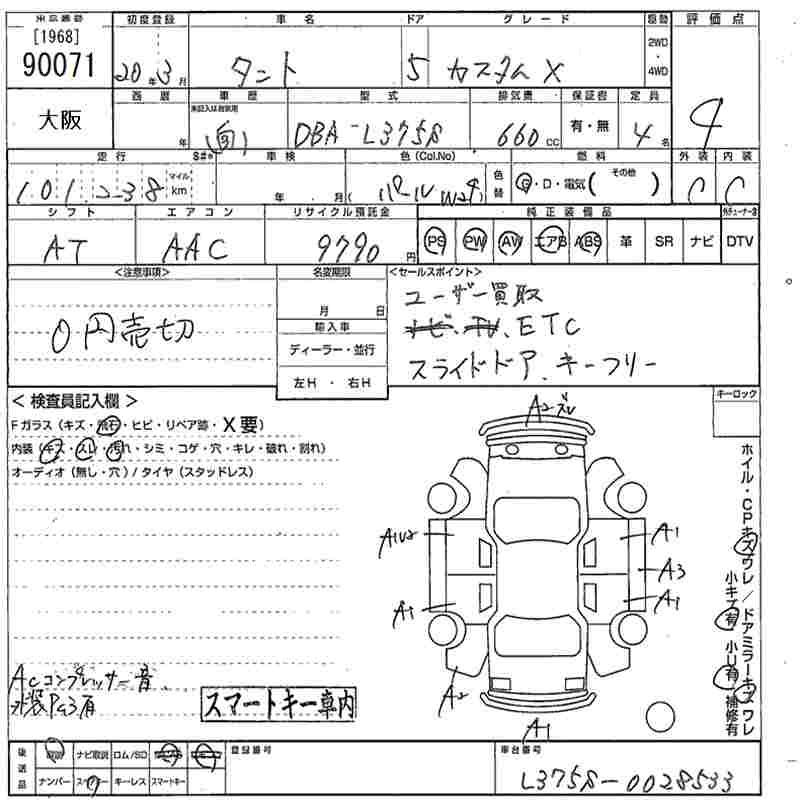 出品番号 初度登録 車名 ドア グレード 駆動 評価点
[1968]
90071 20年3月 タント 5 カスタム X 2WD・4WD 4
大阪 西暦 年 車歴 未記入は自家用 (自) 型式 DBA-L375S 排気量 660cc 保証書 有・無 定員 4名
走行 マイル km 101,238 車検 年 月 色(Col.No) パール W24 色替 燃料 G・D・電気( その他 ) 外装 C 内装 C
シフト エアコン リサイクル預託金 純正装備品
AT AAC 9790円 PS PW AW エアB ABS 革 SR ナビ DTV
<注意事項> 名変期限 <セールスポイント>
0円売切 月 日 ユーザー買取
輸入車 ナビ、TV、ETC
ディーラー・並行 スライドドア、キーフリー
左H・右H
キーロック
<検査員記入欄>
Fガラス(キズ・飛石・ヒビ・リペア跡・X要)
内装(キズ・スレ・汚れ・シミ・コゲ・穴・キレ・破れ・割れ)
オーディオ(無し・穴)/タイヤ(スタッドレス)
A2 ズレ
A1U2 A1
A3
A1 A1
A2
A1
ホイル・CPキズワレ/ドアミラーキズワレ
小キズ有 小U有 補修有
ACコンプレッサー音
外装P43有
スマートキー車内
後送品 ナビ取説 ロム/SD
ナンバー スペアキー キーレス スマートキー
登録番号
車台番号
L375S-0028533